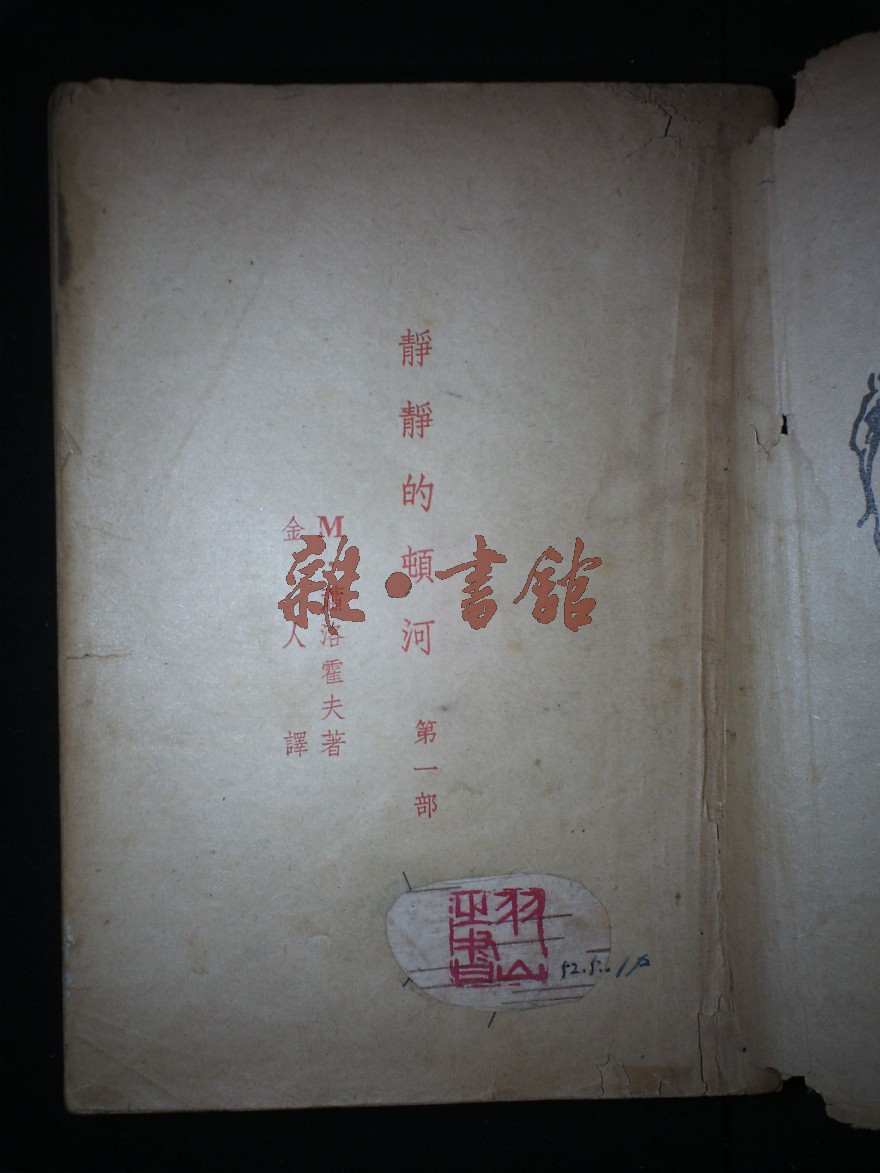 靜靜的頓河 第一部
M 洛霍夫著
金人譯
雜·書館
52.5.